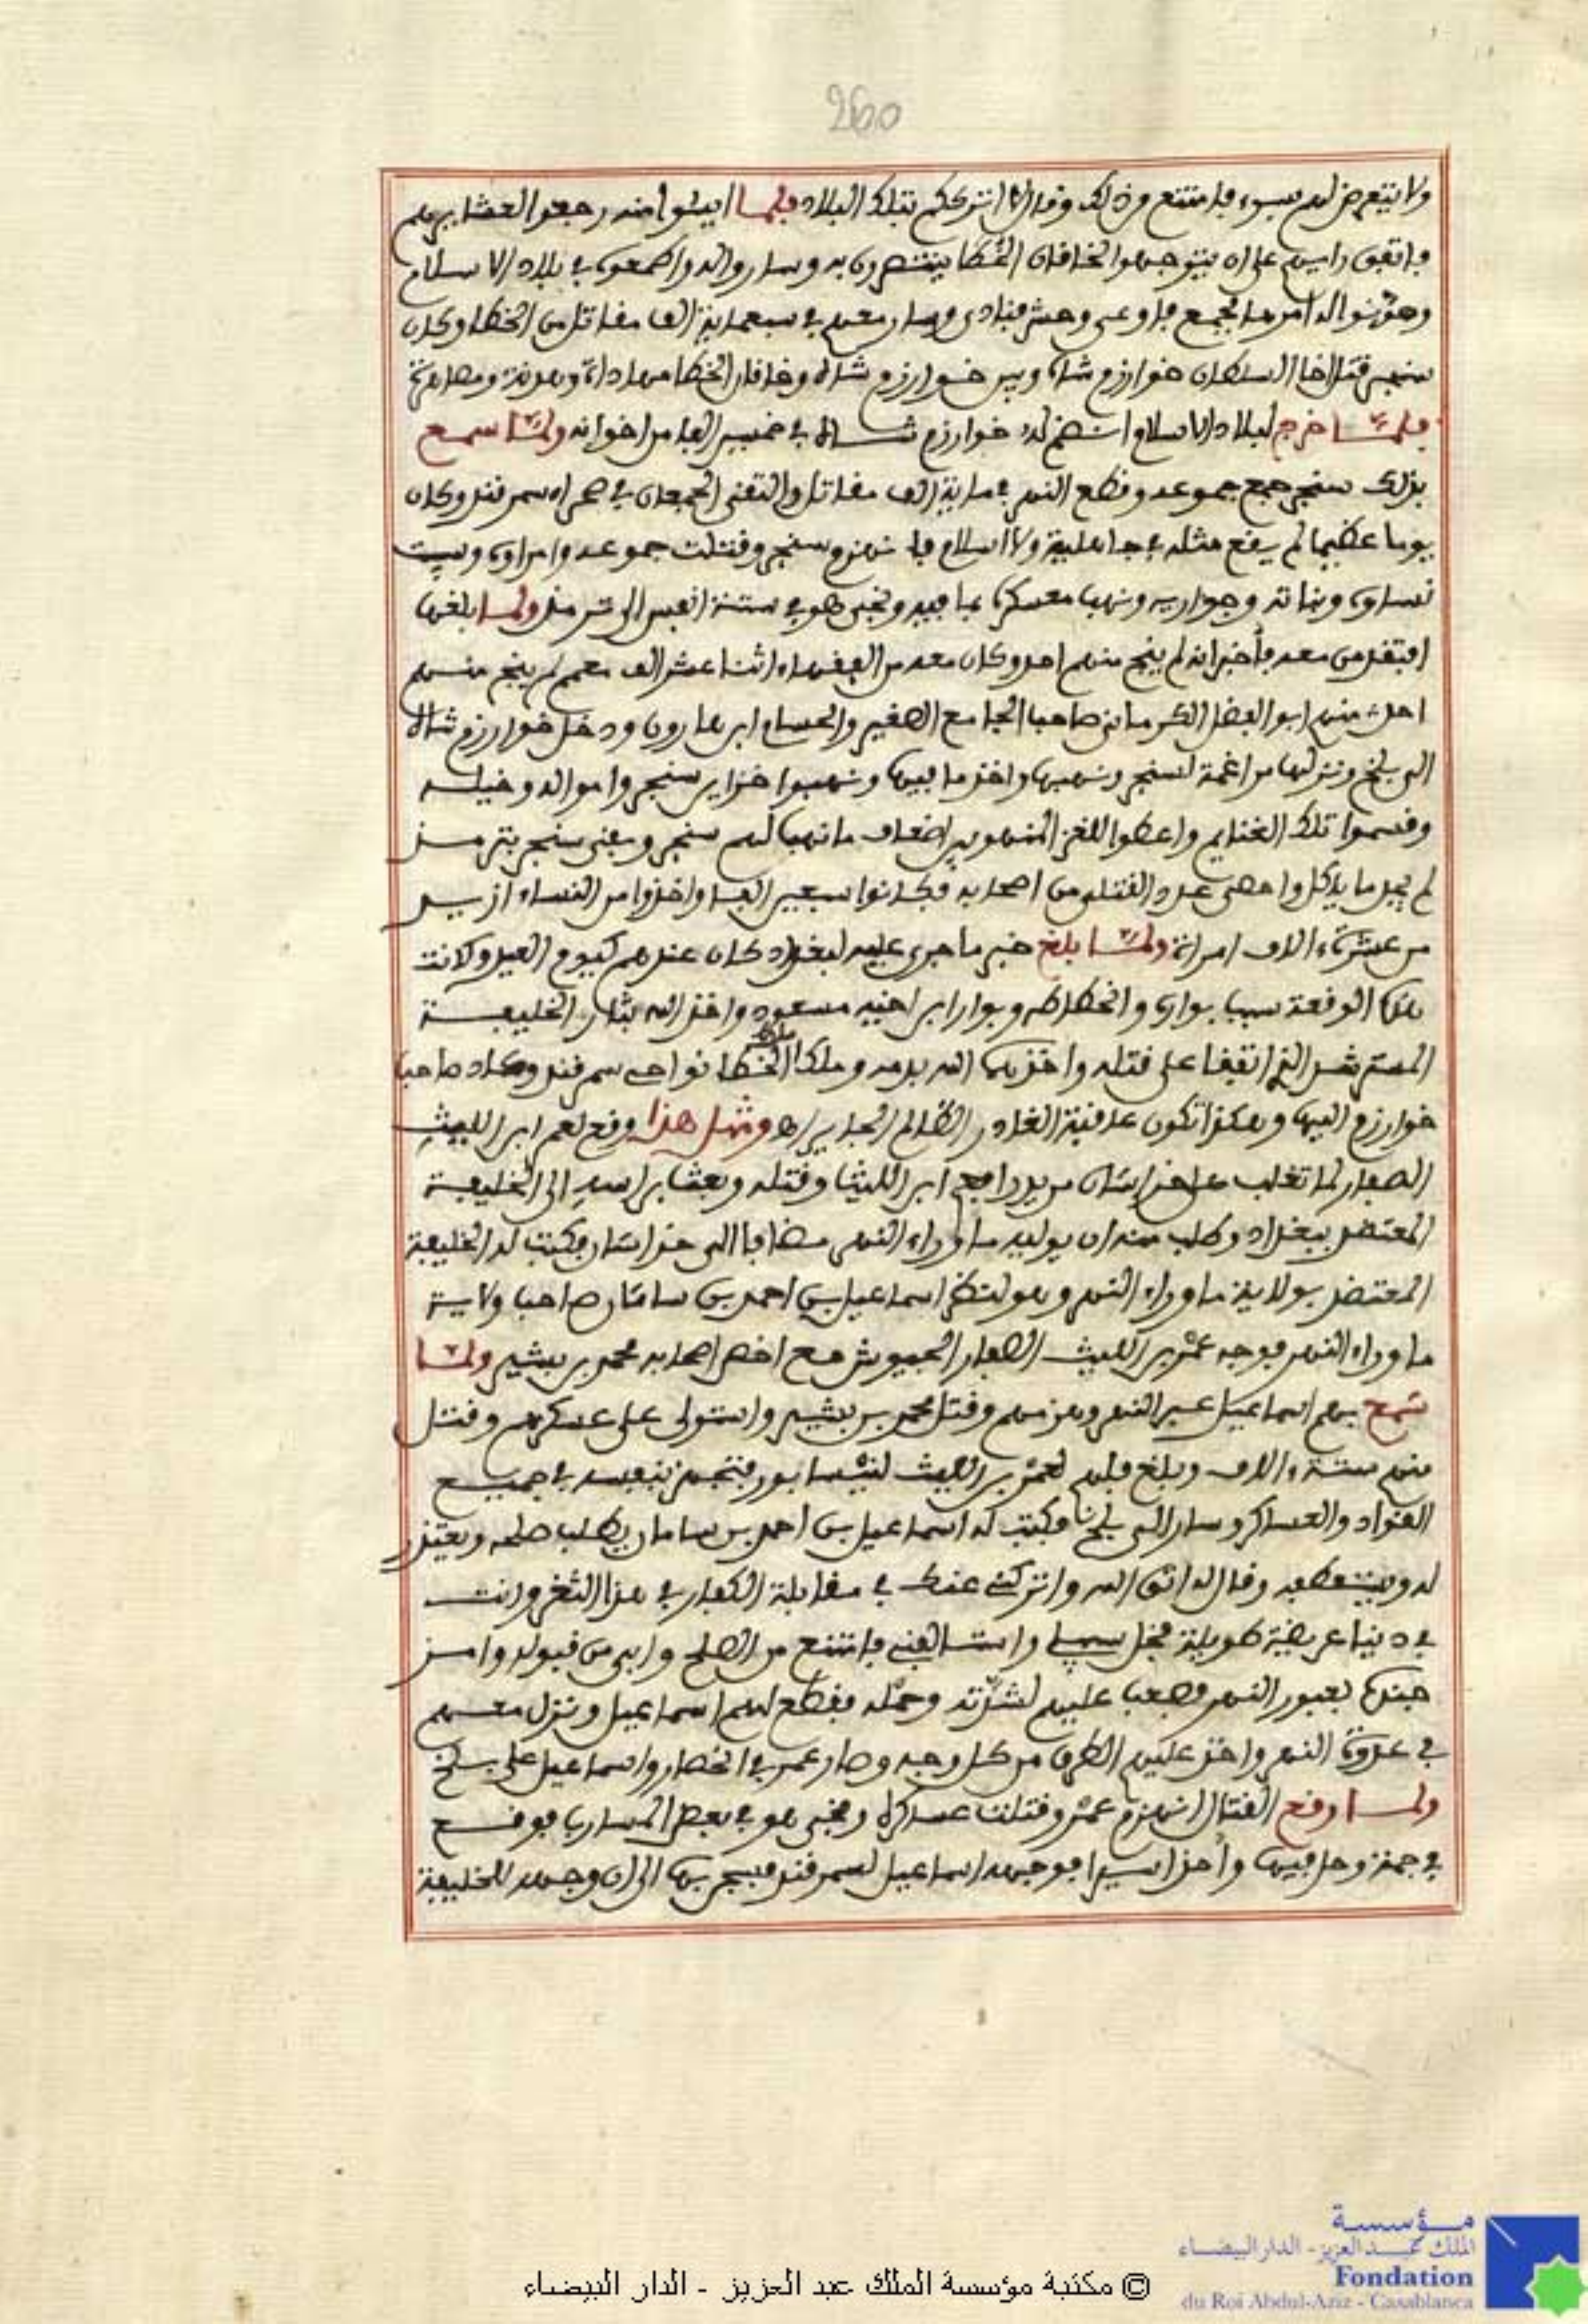 260
ولا يتعرض لهم بسوء فامتنع من ذلك وقال لا انترككم بتلك البلاد فلما ايسوا منه رجعوا لعشايرهم
فاتفق رايهم على ان يتوجهوا لخاقان الخطا ينتصرون به وساروا اليه واطمعوه في بلاد الاسلام
وهونوا له امرها فجمع فاوعى وحشر فنادى وسار معهم في سبعماية الف مقاتل من الخطا وكان
سنجر قتل اخا السلطان خوارزم شاه وبين خوارزم شاه وخاقان الخطا مهاداة وهدنة ومصاهرة
فلما خرج لبلاد الاسلام انضم له خوارزم شاه في خمسين الفا من اخوانه ولما سمع
بذلك سنجر جمع جموعه وقطع النهر في ماية الف مقاتل والتقى الجمعان في صحراء سمرقند وكان
يوما عظيما لم يقع مثله في جاهلية ولا اسلام فانهزم سنجر وقتلت جموعه وامراوه وسبيت
نساوه وبناته وجواريه ونهب معسكره بما فيه ونجى هو في ستة انفس الى ترمذ ولما بلغها
افتقد من معه فأخبر انه لم ينج منهم احد وكان معه من الفقهاء اثنا عشر الف معمم لم ينج منهم
احد منهم ابو الفضل الكرماني صاحب الجامع الصغير والحسام ابن مارون ودخل خوارزم شاه
الى بلخ ونزلها مراغمة لسنجر ونهبها واخذ ما فيها ونهبوا خزاين سنجر وامواله وخيله
وقسموا تلك الغنايم واعطوا للغز المنهوبين اضعاف ما نهب لهم سنجر وبقى سنجر بترمذ
لم يجد ما ياكل واحصى عدد القتلى من اصحابه فكانوا سبعين الفا واخذوا من النساء ازيد
من عشرة ءالاف امراة ولما بلغ خبر ما جرى عليه لبغداد كان عندهم كيوم العيد وكانت
تلك الوقعة سبب بواره وانحطاطه وبوار ابن اخيه مسعود واخذ الله بثار الخليفة
المسترشد الذي اتفقا على قتله واخذهما الله بدمه وملك ملك الخطا نواحي سمرقند وعاد صاحب
خوارزم اليها وهكذا تكون عاقبة الغادر الظالم الجاير اه ومثل هذا وقع لعمر ابن الليث
الصفار لما تغلب على خراسان من يد رافع ابن الليث وقتله وبعث براسه الى الخليفة
المعتضد ببغداد وطلب منه ان يوليه ما وراء النهر مضافا الى خراسان فكتب له الخليفة
المعتضد بولاية ما وراء النهر وهو لنظر اسماعيل بن احمد بن سامان صاحب ولاية
ما وراء النهر فوجه عمر بن الليث الصفار الجيوش مع اخص اصحابه محمد بن بشير ولما
سمع بهم اسماعيل عبر النهر وهزمهم وقتل محمد بن بشير واستولى على عسكرهم وقتل
منهم ستة ءالاف وبلغ فلهم لعمر بن الليث لنيسابور فتجهز بنفسه في جميع
القواد والعساكر وسار الى بلخ فكتب له اسماعيل بن احمد بن سامان يطلب صلحه ويعتذر
له ويستعطفه وقال له اتق الله واتركني عنك في مقابلة الكفار في هذا الثغر وانت
في دنيا عريضة طويلة فخل سبيلي واستالفني فامتنع من الصلح وابى من قبوله وامر
جنده بعبور النهر فصعب عليهم لشدته وحمله فقطع لهم اسماعيل ونزل معهم
في عدوة النهر واخذ عليهم الطرق من كل وجه وصار عمر في الحصار واسماعيل على بلخ
ولما وقع القتال انهزم عمر وقتلت عساكره ونجى هو في بعض المسارب فوقع
في وحل فيها وأخذ اسيرا فوجهه اسماعيل لسمرقند فسجن بها الى ان وجهه للخليفة
© مكتبة مؤسسة الملك عبد العزيز - الدار البيضاء
مؤسسة
الملك عبد العزيز - الدار البيضاء
Fondation
du Roi Abdul-Aziz - Casablanca